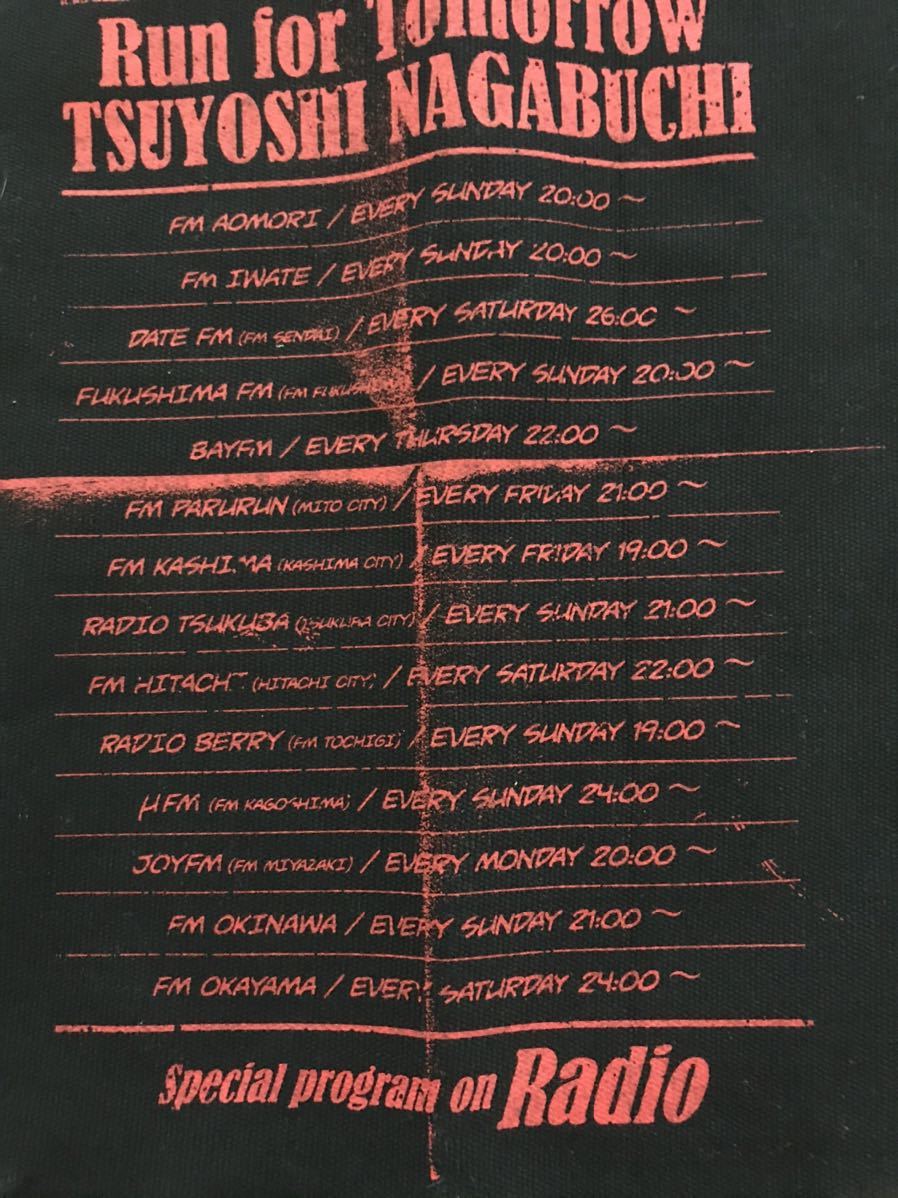 Run for Tomorrow
TSUYOSHI NAGABUCHI
FM AOMORI / EVERY SUNDAY 20:00 ~
FM IWATE / EVERY SUNDAY 20:00 ~
DATE FM (FM SENDAI) / EVERY SATURDAY 26:00 ~
FUKUSHIMA FM (FM / EVERY SUNDAY 20:00 ~
BAYFM / EVERY THURSDAY 22:00 ~
FM PARURUN (MITO CITY) / EVERY FRIDAY 21:00 ~
FM KASHIMA (KASHIMA CITY) / EVERY FRIDAY 19:00 ~
RADIO TSUKUBA (TSUKUBA CITY) / EVERY SUNDAY 21:00 ~
FM HITACHI (HITACHI CITY) / EVERY SATURDAY 22:00 ~
RADIO BERRY (FM TOCHIGI) / EVERY SUNDAY 19:00 ~
μFM (FM KAGOSHIMA) / EVERY SUNDAY 24:00 ~
JOYFM (FM MIYAZAKI) / EVERY MONDAY 20:00 ~
FM OKINAWA / EVERY SUNDAY 21:00 ~
FM OKAYAMA / EVERY SATURDAY 24:00 ~
Special program on Radio